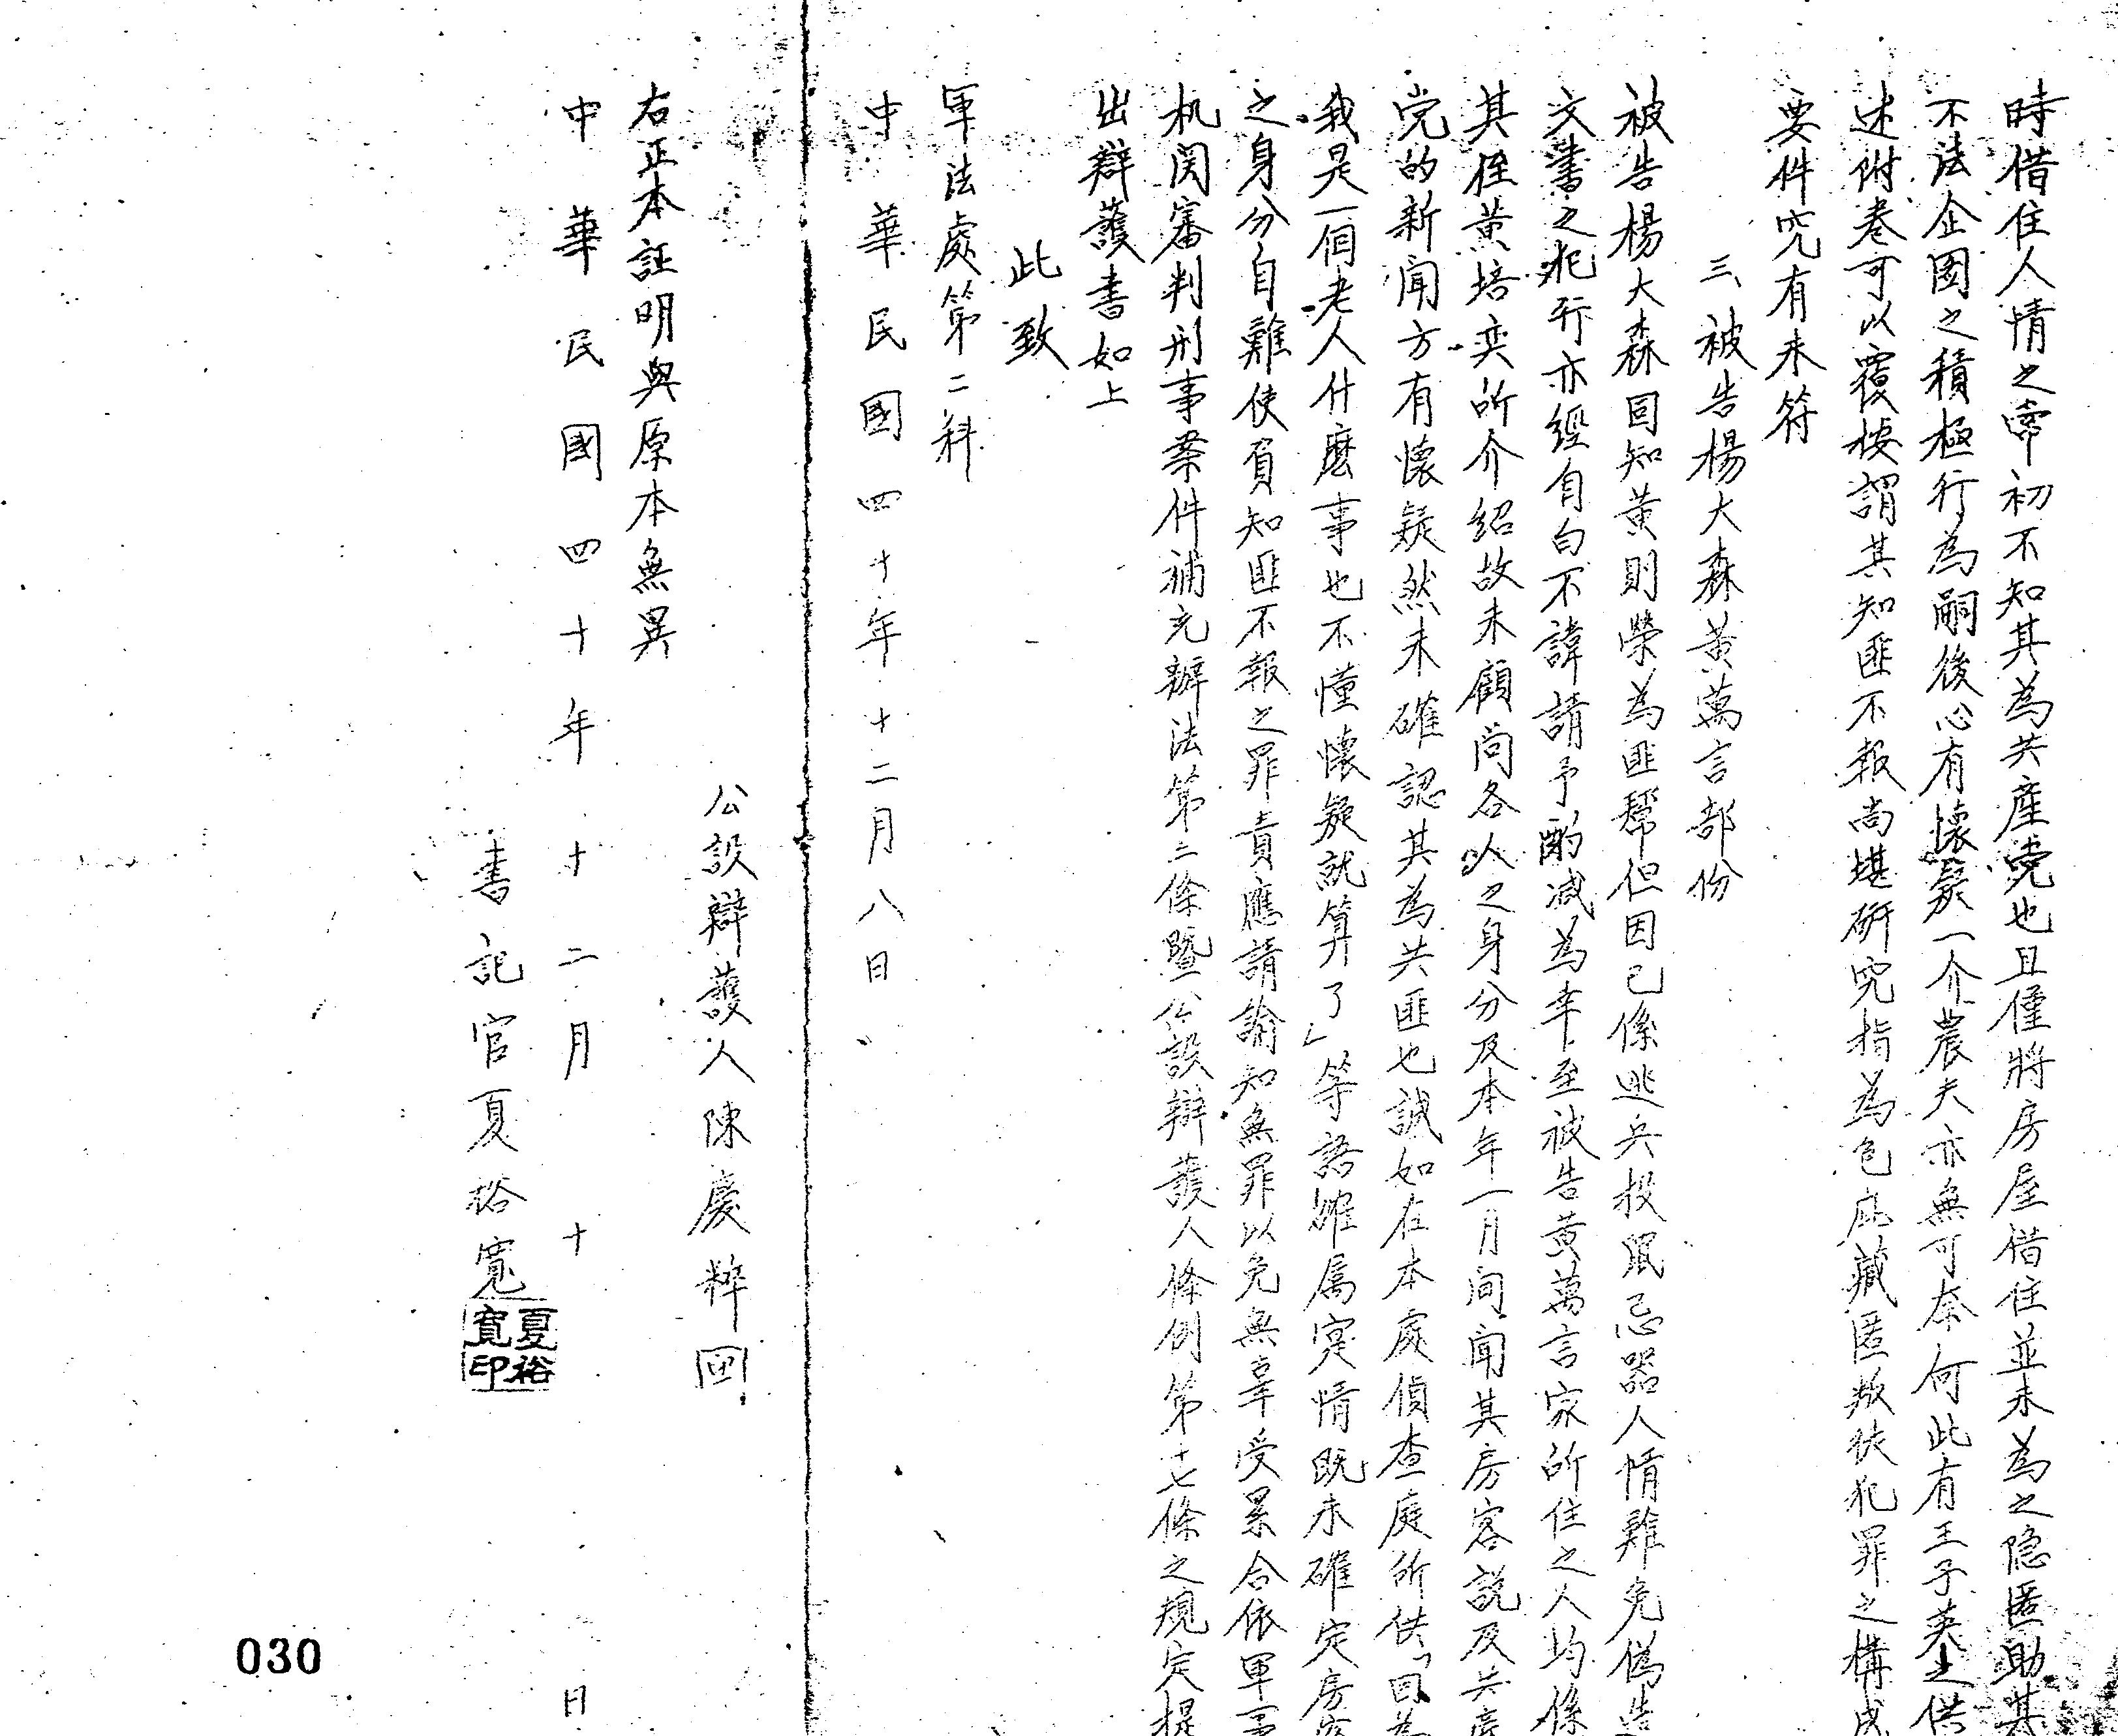 時借住人情之常初不知其為共產党也且僅將房屋借住並未為之隐匿助其
不法企圖之積極行為嗣後心有懷疑一介農夫亦無可奈何此有王子英之供
述附卷可以覆按謂其知匪不報尚堪研究指為包庇藏匿叛徒犯罪之構成
要件究有未符
三、被告楊大森黃萬言部份
被告楊大森固知黃則榮為匪幫但因已係逃兵投鼠忌器人情難免偽造
文書之犯行亦經自白不諱請予酌減為幸至被告黃萬言家所住之人均係
其侄黃培奕所介紹故未顧問各人之身分及本年一月间聞其房客説及共產
党的新聞方有懷疑然未確認其為共匪也誠如在本處偵查庭所供「因為
我是一個老人什麽事也不懂懷疑就算了」等語確属實情既未確定房客
之身分自難使負知匪不報之罪責應請諭知無罪以免無辜受累合依軍事
机関審判刑事案件補充辦法第二條暨公設辯護人條例第十七條之規定提
出辯護書如上
此致
軍法處第二科
中華民國四十年十二月八日
公設辯護人陳慶粹 印
右正本証明與原本無異
中華民國四十年十二月十日
書記官夏裕寬
夏裕寬印
030